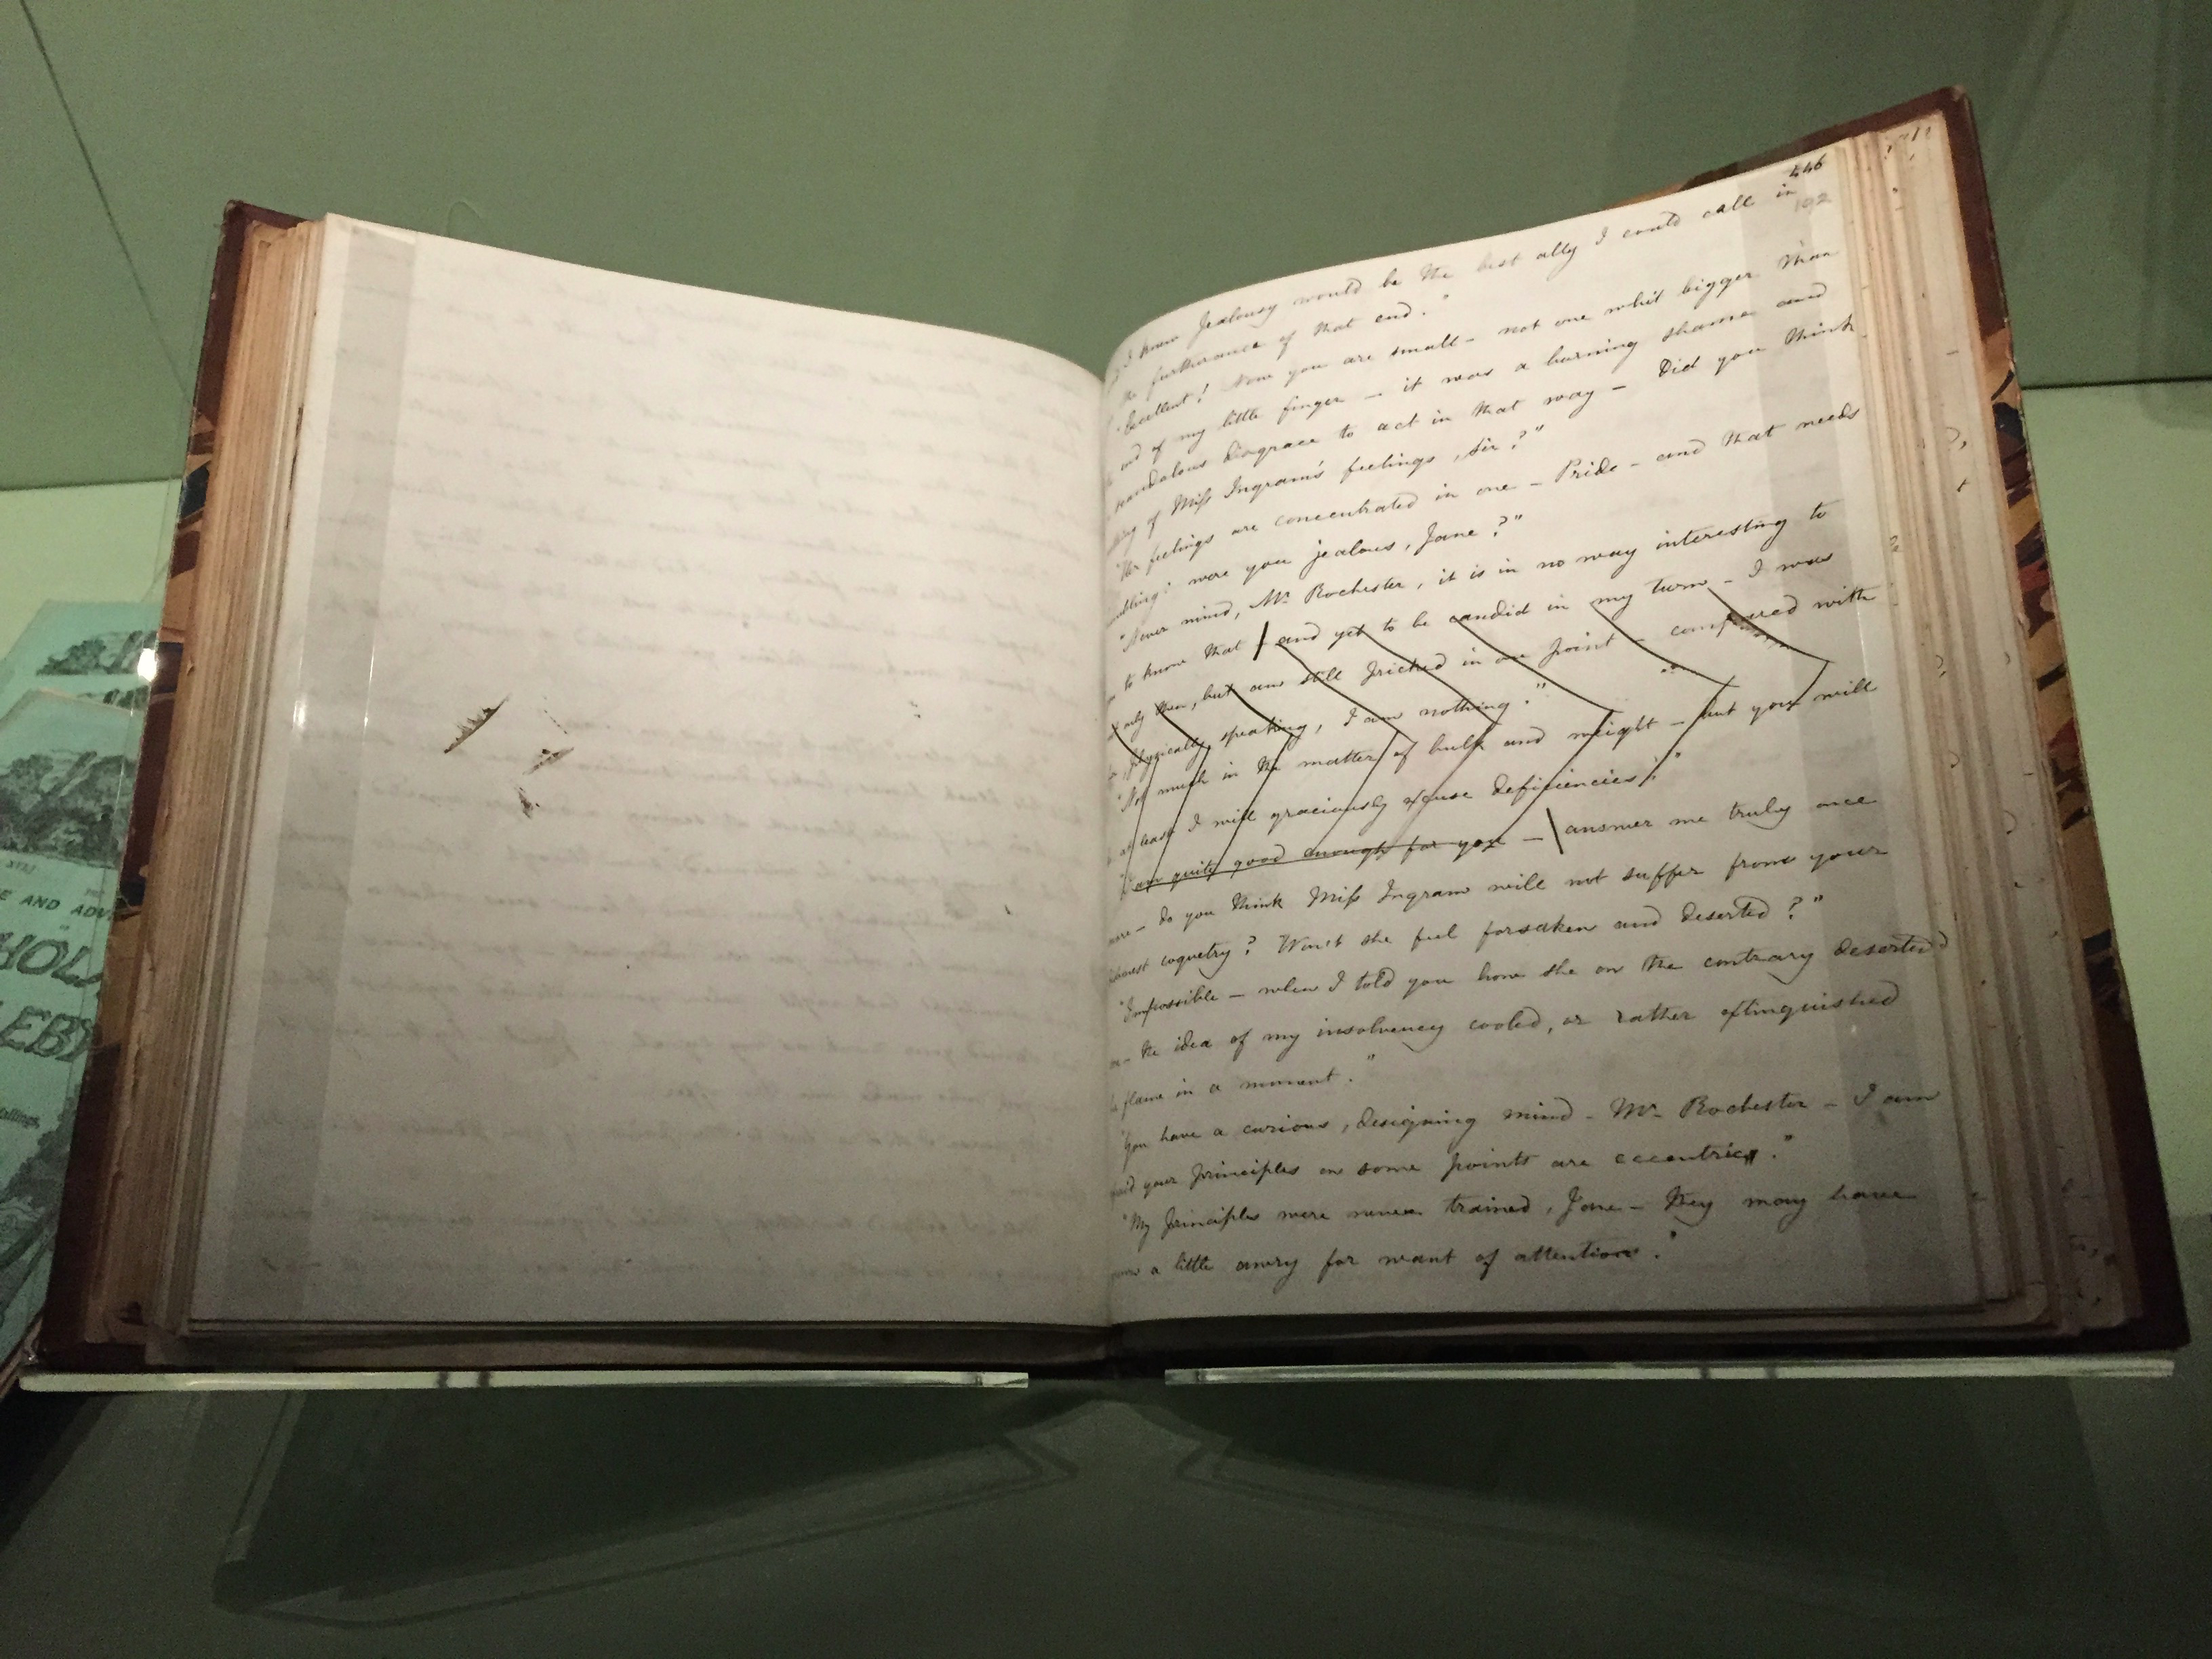 446
192
I know Jealousy would be the best ally I could call in
the furtherance of that end."
"Excellent! Now you are small – not one whit bigger than
end of my little finger – it was a burning shame and
scandalous disgrace to act in that way – Did you think
of Miss Ingram's feelings, Sir?"
"Her feelings are concentrated in one – Pride – and that needs
were you jealous, Jane?"
"Never mind, Mr Rochester, it is in no way interesting to
to know that – and yet to be candid in my turn – I was
only then, but am still pricked in one point – compared with
physically speaking, I am nothing."
"Not much in the matter of bulk and weight – but you will
at least I will graciously excuse deficiencies."
am quite good enough for you – answer me truly once
more – do you think Miss Ingram will not suffer from your
coquetry? Won't she feel forsaken and deserted?"
"Impossible – when I told you how she on the contrary deserted
the idea of my insolvency cooled, or rather extinguished
flame in a moment."
"You have a curious, designing mind – Mr Rochester – I am
your principles on some points are eccentric."
"My principles were never trained, Jane – they may have
a little awry for want of attention."
E AND ADV
HOL
EB